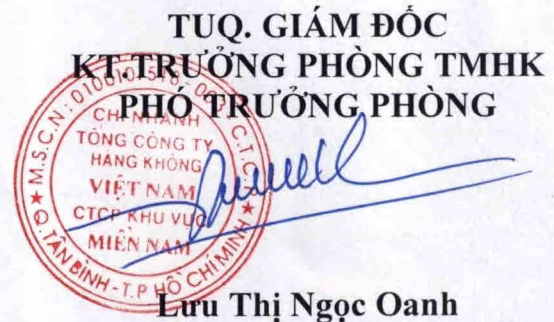 TUQ. GIÁM ĐỐC
KT. TRƯỞNG PHÒNG TMHK
PHÓ TRƯỞNG PHÒNG
CHI NHÁNH
TỔNG CÔNG TY
HÀNG KHÔNG
VIỆT NAM
CTCP KHU VỰC
MIỀN NAM
Q. TÂN BÌNH - T.P HỒ CHÍ MINH
Lưu Thị Ngọc Oanh